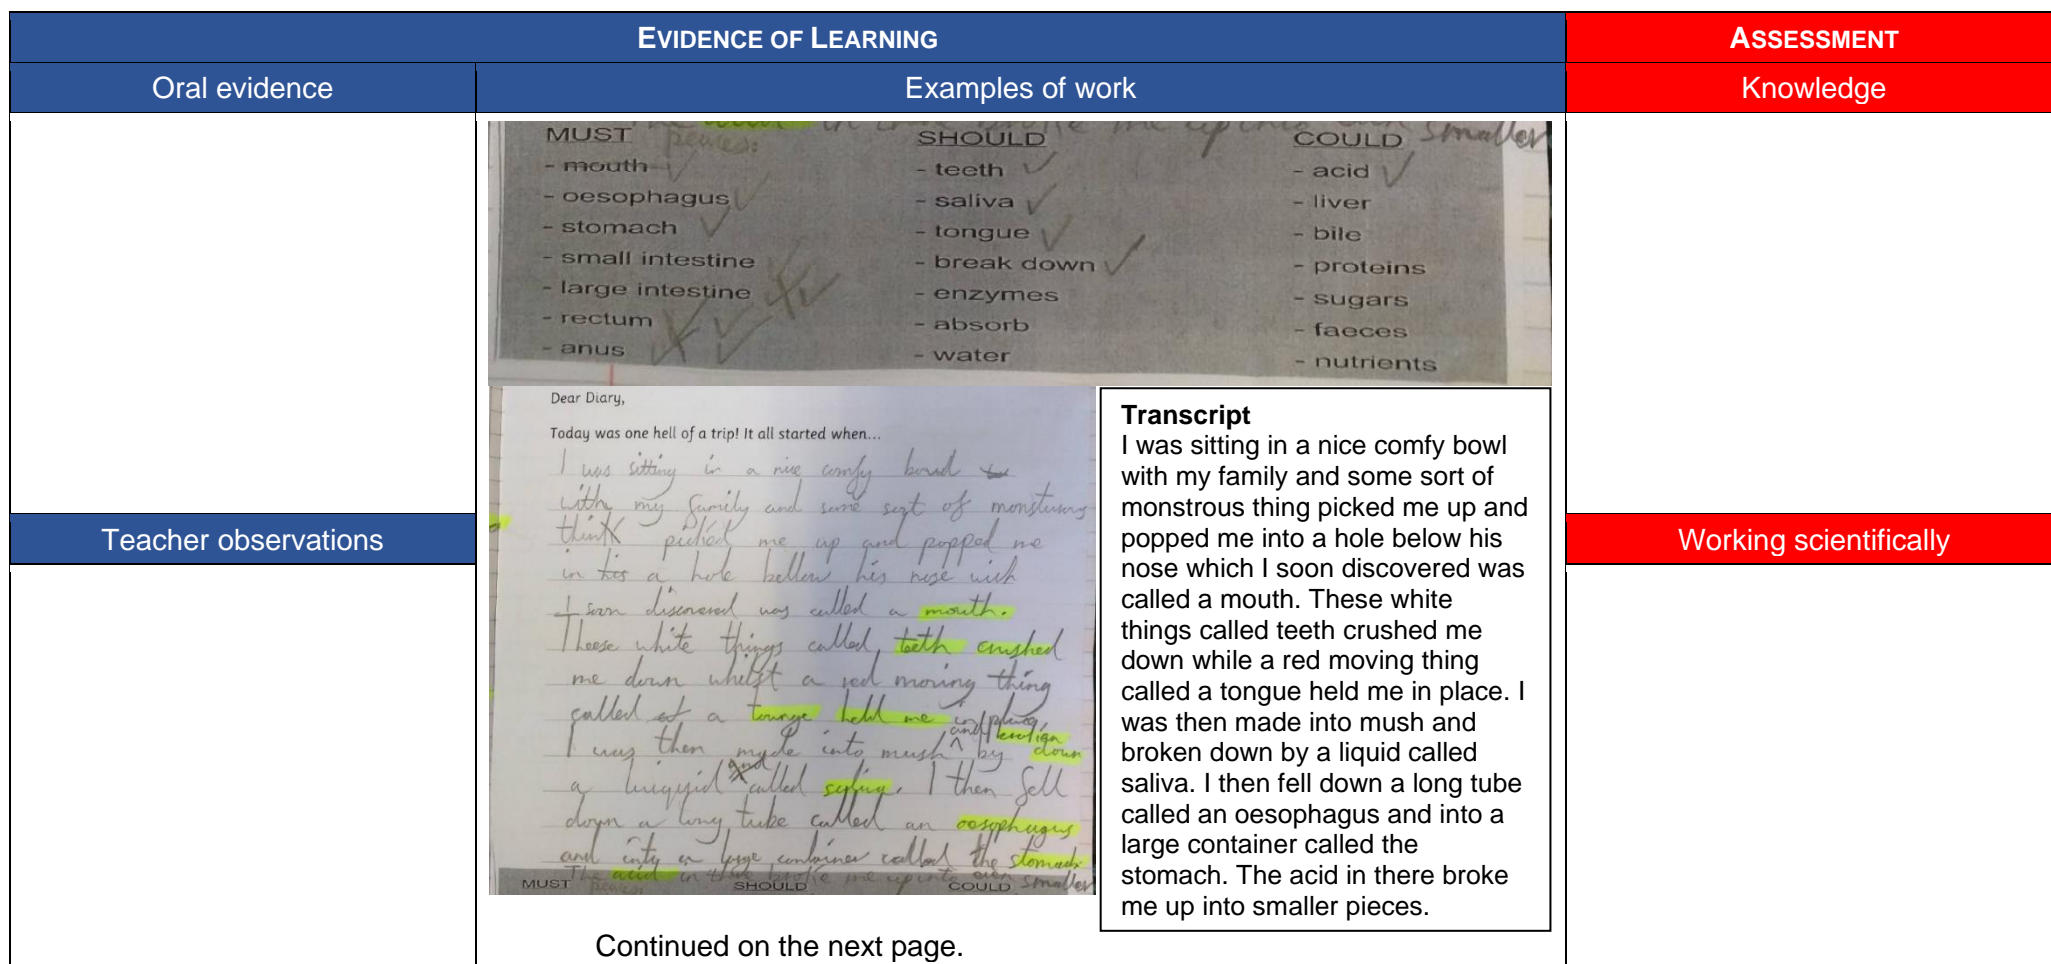 EVIDENCE OF LEARNING
ASSESSMENT
Oral evidence
Examples of work
Knowledge
The acid in there broke me up into even smaller
peaces.
MUST
- mouth
- oesophagus
- stomach
- small intestine
- large intestine
- rectum
- anus
SHOULD
- teeth
- saliva
- tongue
- break down
- enzymes
- absorb
- water
COULD
- acid
- liver
- bile
- proteins
- sugars
- faeces
- nutrients
Teacher observations
Dear Diary,
Today was one hell of a trip! It all started when...
I was sitting in a nice comfy
with my family and some sort of
picked me up and popped me
in his a hole bellow his nose wich
I soon discovered was called a mouth.
Theese white things called teeth crushed
me down whilst a red moving thing
called a tounge held me in place.
I was then made into mush and by down
a called . I then fell
down a long tube called an oesophagus
and into a large container called the stomach
The acid in there broke me up into even smaller
peaces.
MUST SHOULD COULD
Transcript
I was sitting in a nice comfy bowl
with my family and some sort of
monstrous thing picked me up and
popped me into a hole below his
nose which I soon discovered was
called a mouth. These white
things called teeth crushed me
down while a red moving thing
called a tongue held me in place. I
was then made into mush and
broken down by a liquid called
saliva. I then fell down a long tube
called an oesophagus and into a
large container called the
stomach. The acid in there broke
me up into smaller pieces.
Working scientifically
Continued on the next page.